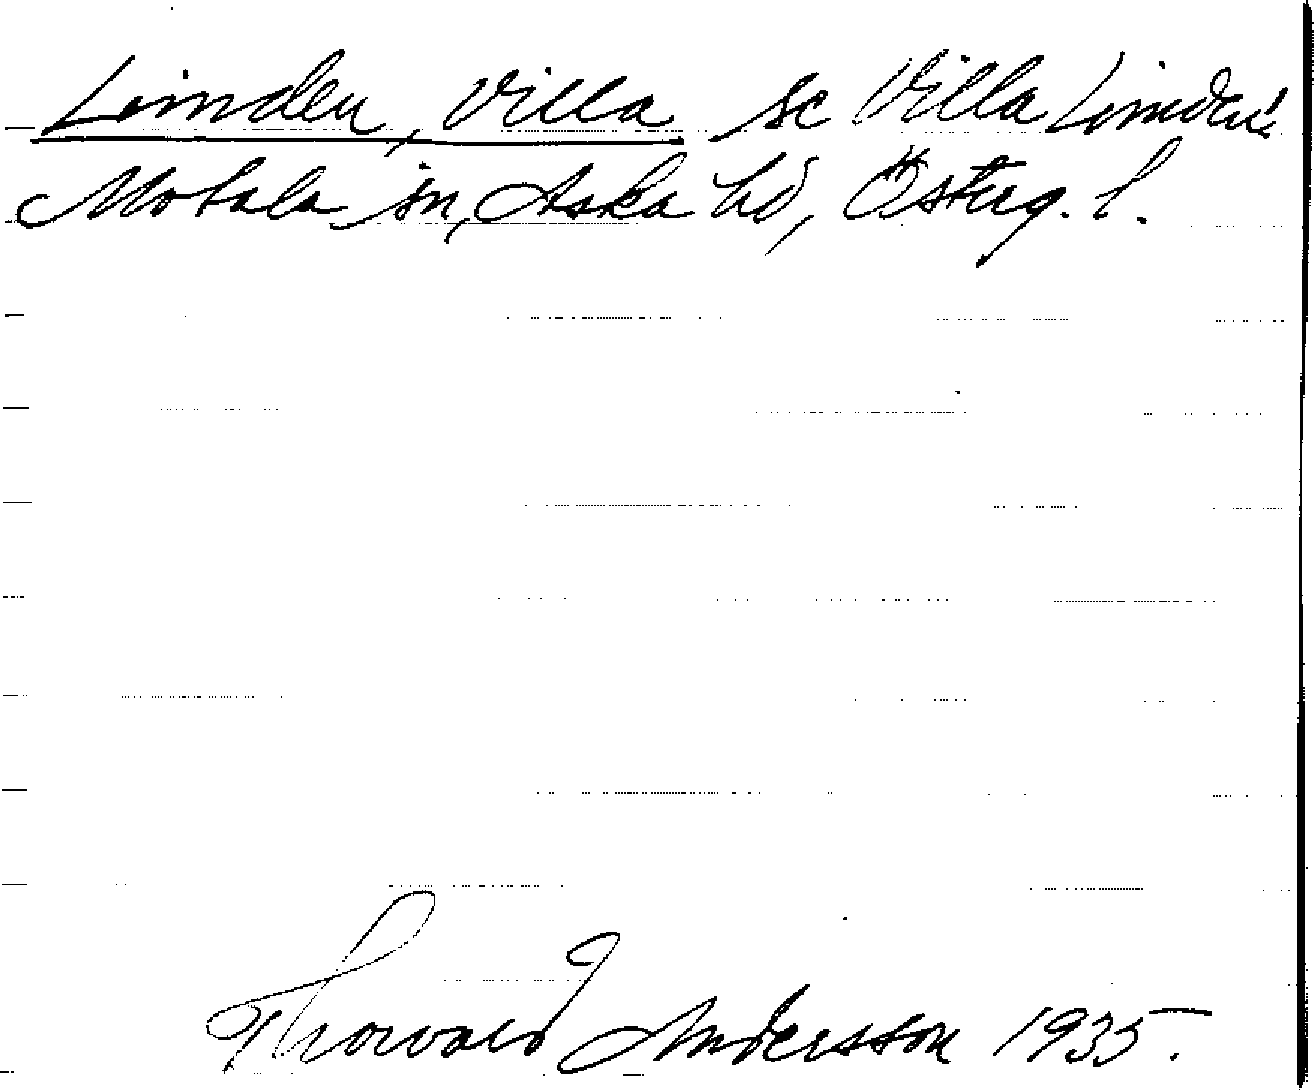 Limden, Villa se Villa Limden!
Motala sn, Aska hd, Österg. l.
Thorvald Andersson 1935.